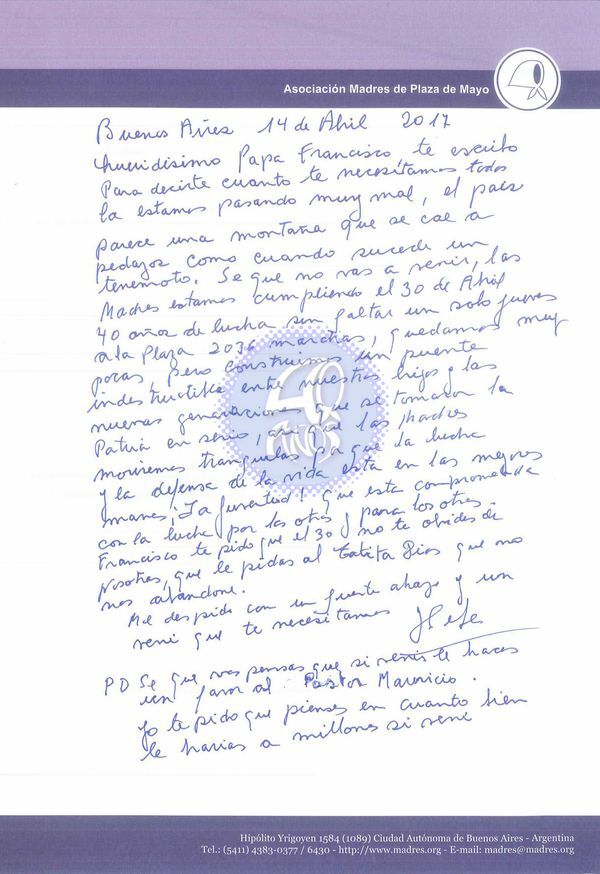 Asociación Madres de Plaza de Mayo
Buenos Aires 14 de Abril 2017
Queridisimo Papa Francisco te escribo
Para decirte cuanto te necesitamos todos
la estamos pasando muy mal, el pais
parece una montaña que se cae a
pedazos como cuando sucede un
terremoto. Se que no vas a venir, las
Madres estamos cumpliendo el 30 de Abril
40 años de lucha sin faltar un solo jueves
a la Plaza 2036 marchas, quedamos muy
pocas, pero construimos un puente
indestructible entre nuestros hijos y las
nuevas generaciones que se tomaron la
Patria en serio, asi que las Madres
moriremos tranquilas porque la lucha
y la defensa de la vida esta en las mejores
manos, ¡La juventud! que esta comprometida
con la lucha por los otros y para los otros.
Francisco te pido que el 30 no te olvides de
Nosotras, que le pidas al Tatita Dios que no
nos abandone.
Me despido con un fuerte abrazo y un
vení que te necesitamos
Hebe
PD Se que vas pensas que si venis le haces
un favor al Pastor Mauricio.
Yo te pido que pienses en cuanto bien
le harias a millones si vení
40
AÑOS
Hipólito Yrigoyen 1584 (1089) Ciudad Autónoma de Buenos Aires - Argentina
Tel.: (5411) 4383-0377 / 6430 - http://www.madres.org - E-mail: madres@madres.org